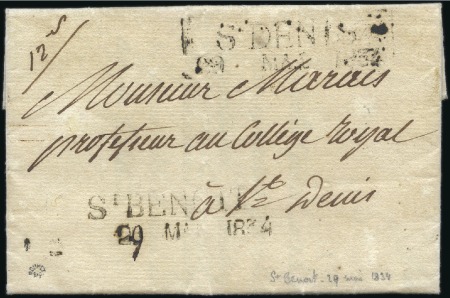 12 s
St DENIS
29 MAI 1834
Monsieur Marais
professeur au Collège royal
à St Denis
St BENOIT
29 MAI 1834
St Benoit - 29 mai 1834